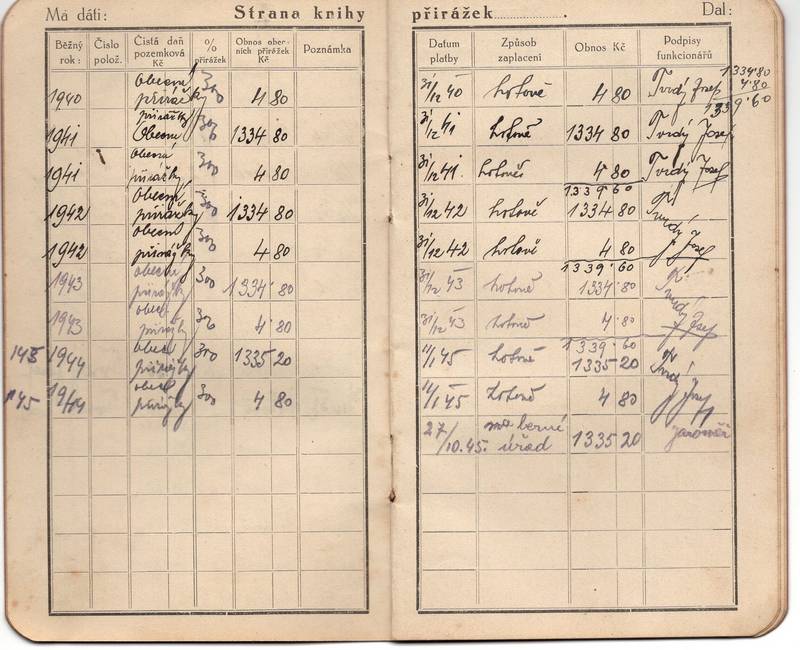 Má dáti: Strana knihy přirážek Dal:
Běžný rok: Číslo polož. Čistá daň pozemková Kč % přirážek Obnos obecních přirážek Kč Poznámka
1940 Obecní přirážky 300 4 80
1941 přirážky Obecní 300 1334 80
1941 Obecní přirážky 300 4 80
1942 Obecní přirážky 300 1334 80
1942 obecní přirážky 300 4 80
1943 obecní přirážky 300 1334 80
1943 obecní přirážky 300 4 80
1944 obec přirážky 300 1335 20
145 obec přirážky 300 4 80
Datum platby Způsob zaplacení Obnos Kč Podpisy funkcionářů
1334.80
4.80
1339.60
31/12 40 hotově 4 80 Tvrdý Josef
31/12 41 hotově 1334 80 Tvrdý Josef
31/12 41 hotově 4 80 Tvrdý Josef
1339 60
31/12 42 hotově 1334 80 Tvrdý
31/12 42 hotově 4 80 Josef
1339.60
31/12 43 hotově 1334.80 Tvrdý
31/12 43 hotově 4.80 Josef
1339.60
11/1 45 hotově 1335 20 Tvrdý
11/1 45 hotově 4 80 Josef
27/10.45. berní úřad 1335 20 Jaroměř